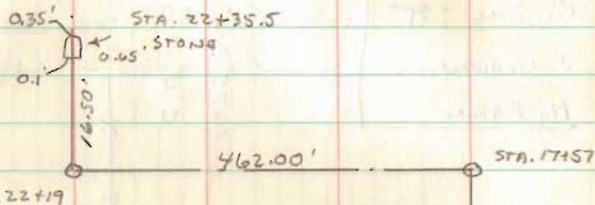 0.35' STA. 22+35.5
0.65' STONE
0.1
16.50'
462.00'
STA. 17+57
22+19